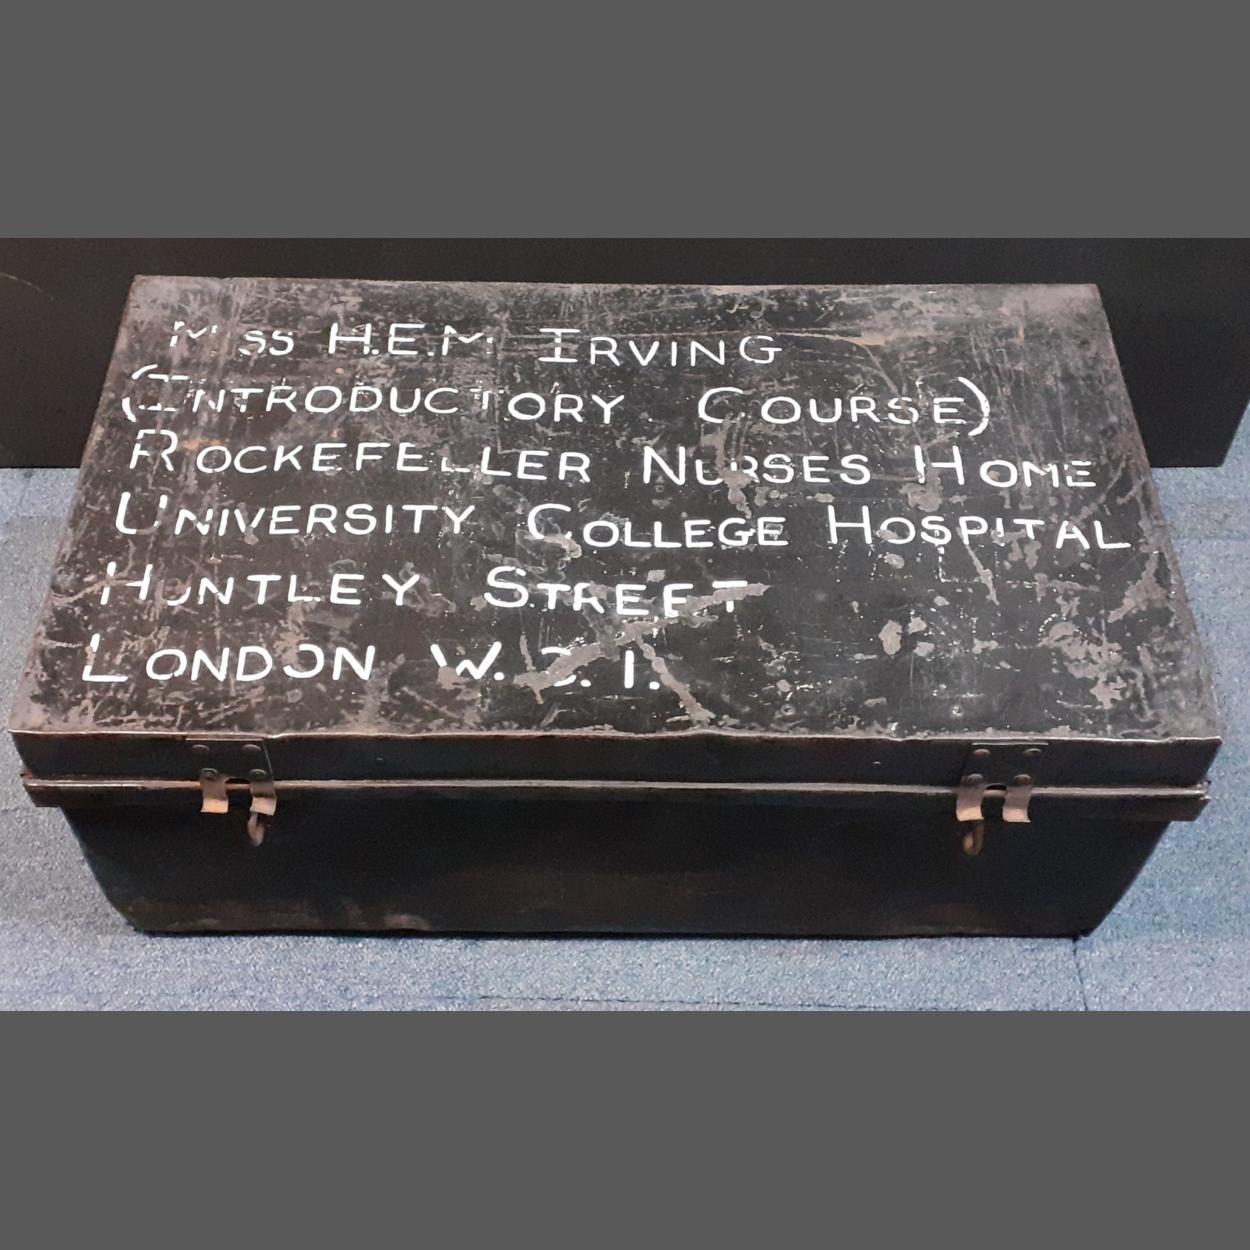 Miss H.E.M. IRVING
(INTRODUCTORY COURSE)
ROCKEFELLER NURSES HOME
UNIVERSITY COLLEGE HOSPITAL
HUNTLEY STREET
LONDON W.C.1.